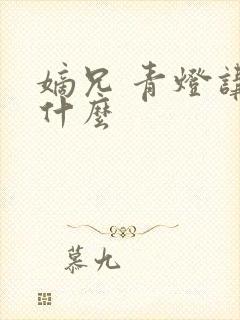 嫡兄 青燈講
什麼
慕九